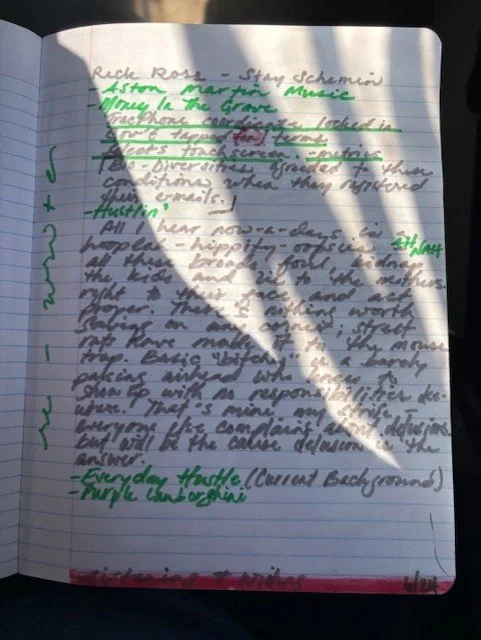 Rick Ross - Stay Schemin
- Aston Martin Music
- Money In the Grave
Tracphone coordinates locked in
Gov't tapped terms
touchscreen - metrics
(Bio-Diversities agreed to these
conditions when they registered
their e-mails.
- Hustlin'
All I hear now-a-days is a
hoopla - hippity -
all these broads fowl, kidnap
the kids and lie to the mothers
right to their face and act
proper. There's nothing worth
on any corner; street
rats have made it in the mouse
trap. Basic "bitches" is a barely
passing airhead who knows to
show up with no responsibilities else-
where. That's mine, my strife -
everyone else complains about delusions
but will be the cause delusion is the
answer.
- Everyday Hustle (Current Background)
- Purple Lamborghini
re - write
listening & writing
6/24